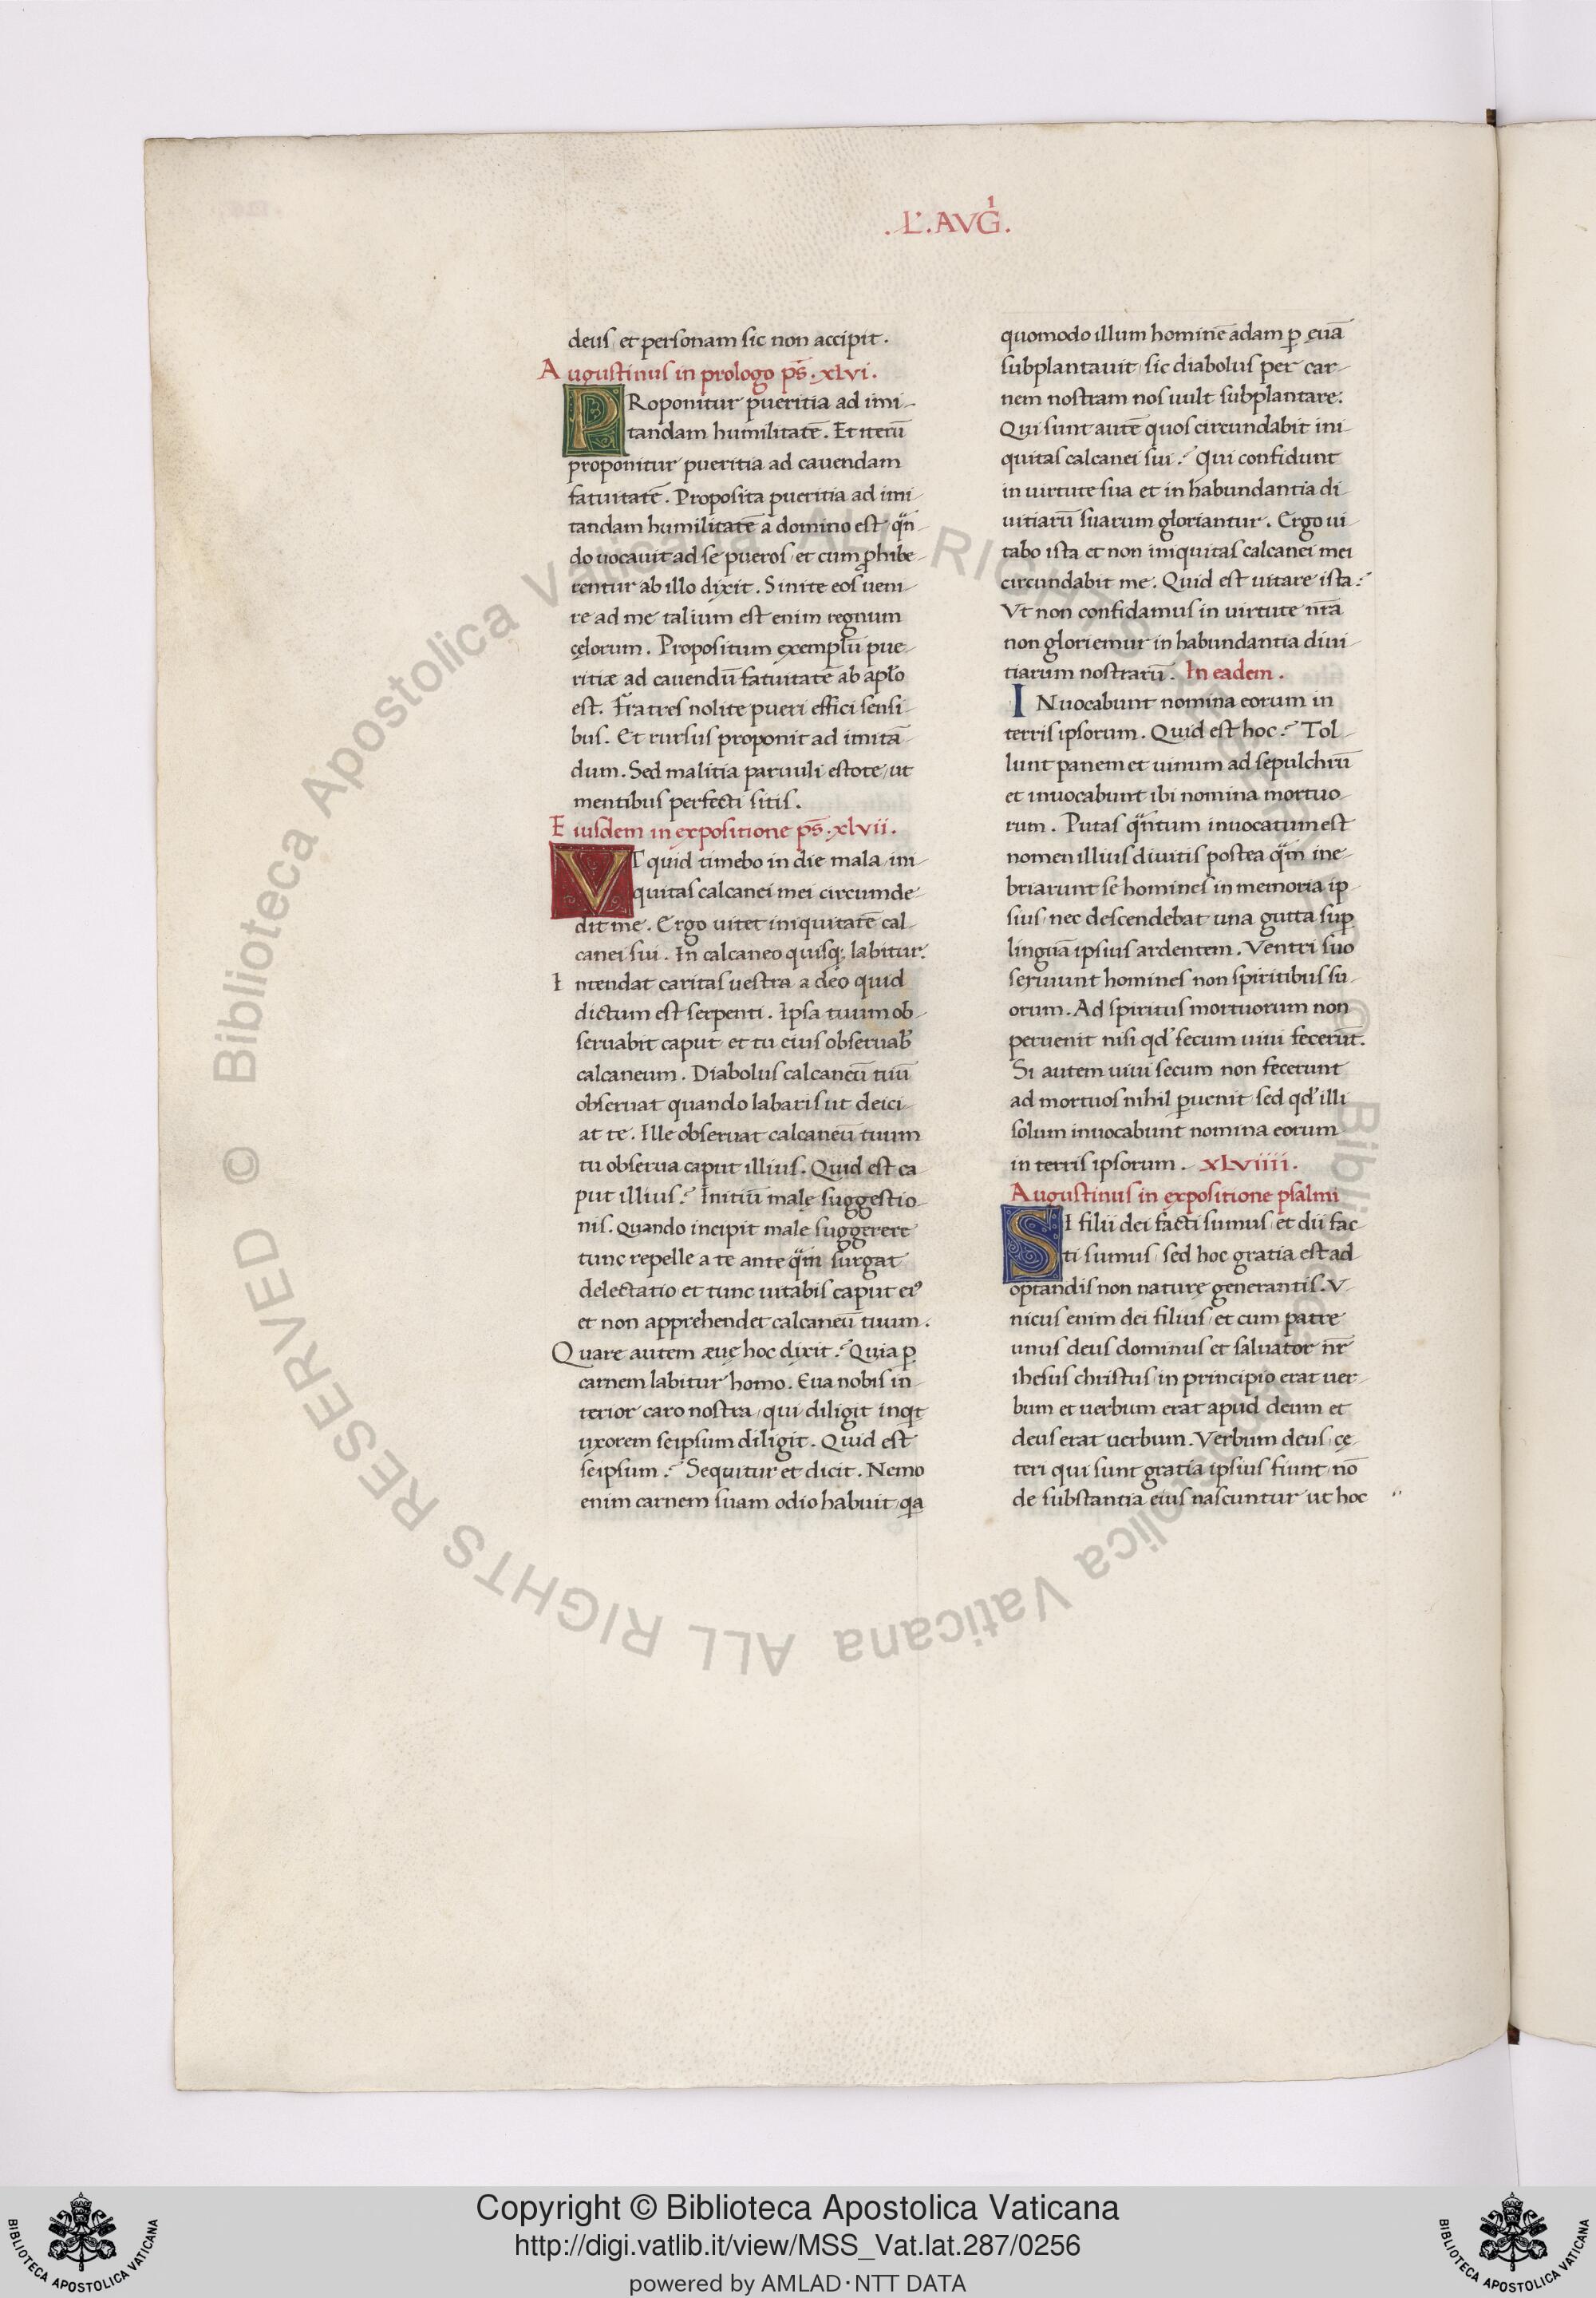 .L'.AVG̍.
deus, et personam sic non accipit.
Augustinus in prologo ps̄. xlvi.
PRoponitur pueritia ad imi-
tandam humilitatē. Et iterū
proponitur pueritia ad cauendam
fatuitatē. Proposita pueritia ad imi-
tandam humilitatē a domino est, qn̄-
do uocauit ad se pueros, et cum ꝓhibe-
rentur ab illo dixit. Sinite eos ueni-
re ad me talium est enim regnum
cęlorum. Propositum exemplū pue-
ritiæ ad cauendū fatuitatē ab apło
est. Fratres nolite pueri effici sensi-
bus. Et rursus proponit ad imitā-
dum. Sed malitia paruuli estote, ut
mentibus perfecti sitis.
Eiusdem in expositione ps̄. xlvii.
VT quid timebo in die mala, ini-
quitas calcanei mei circumde-
dit me. Ergo uitet iniquitatē cal-
canei sui. In calcaneo quisq; labitur.
Intendat caritas uestra a deo quid
dictum est serpenti. Ipsa tuum ob-
seruabit caput, et tu eius obseruab̄
calcaneum. Diabolus calcaneū tuū
obseruat quando labaris ut deici-
at te. Ille obseruat calcaneū tuum
tu obserua caput illius. Quid est ca
put illius? Initiū malę suggestio-
nis. Quando incipit male suggerere
tunc repelle a te ante qm̄ surgat
delectatio et tunc uitabis caput eiꝰ
et non apprehendet calcaneū tuum.
Quare autem æuę hoc dixit? Quia ꝑ
carnem labitur homo. Eua nobis in-
terior caro nostra, qui diligit inqt
uxorem seipsum diligit. Quid est
seipsum? Sequitur et dicit. Nemo
enim carnem suam odio habuit, qa
quomodo illum hominē adam ꝑ euā
subplantauit, sic diabolus per car-
nem nostram nos uult subplantare.
Qui sunt autē quos circundabit ini-
quitas calcanei sui? Qui confidunt
in uirtute sua et in habundantia di-
uitiarū suarum gloriantur. Ergo ui-
tabo ista et non iniquitas calcanei mei
circundabit me. Quid est uitare ista?
Vt non confidamus in uirtute nr̄a
non gloriemur in habundantia diui-
tiarum nostrarū. In eadem.
INuocabunt nomina eorum in
terris ipsorum. Quid est hoc? Tol-
lunt panem et uinum ad sepulchrū
et inuocabunt ibi nomina mortuo-
rum. Putas qn̄tum inuocatum est
nomen illius diuitis postea qm̄ ine-
briarunt se homines in memoria ip-
sius, nec descendebat una gutta suꝑ
linguā ipsius ardentem. Ventri suo
seruiunt homines non spiritibus su-
orum. Ad spiritus mortuorum non
peruenit nisi qd' secum uiui fecerūt.
Si autem uiui secum non fecerunt
ad mortuos nihil ꝑuenit, sed qd' illi
solum inuocabunt nomina eorum
in terris ipsorum. xLviiii.
Augustinus in expositione psalmi
SI filii dei facti sumus, et dii fac-
ti sumus, sed hoc gratia est ad-
optandis non naturę generantis. V-
nicus enim dei filius, et cum patre
unus deus dominus et saluator nr̄
ihesus christus, in principio erat uer-
bum et uerbum erat apud deum et
deus erat uerbum. Verbum deus, cę-
teri qui sunt gratia ipsius fiunt, nō
de substantia eius nascuntur ut hoc
© Biblioteca Apostolica Vaticana ALL RIGHTS RESERVED
© Biblioteca Apostolica Vaticana ALL RIGHTS RESERVED
Copyright © Biblioteca Apostolica Vaticana
http://digi.vatlib.it/view/MSS_Vat.lat.287/0256
powered by AMLAD·NTT DATA
BIBLIOTECA APOSTOLICA VATICANA
BIBLIOTECA APOSTOLICA VATICANA